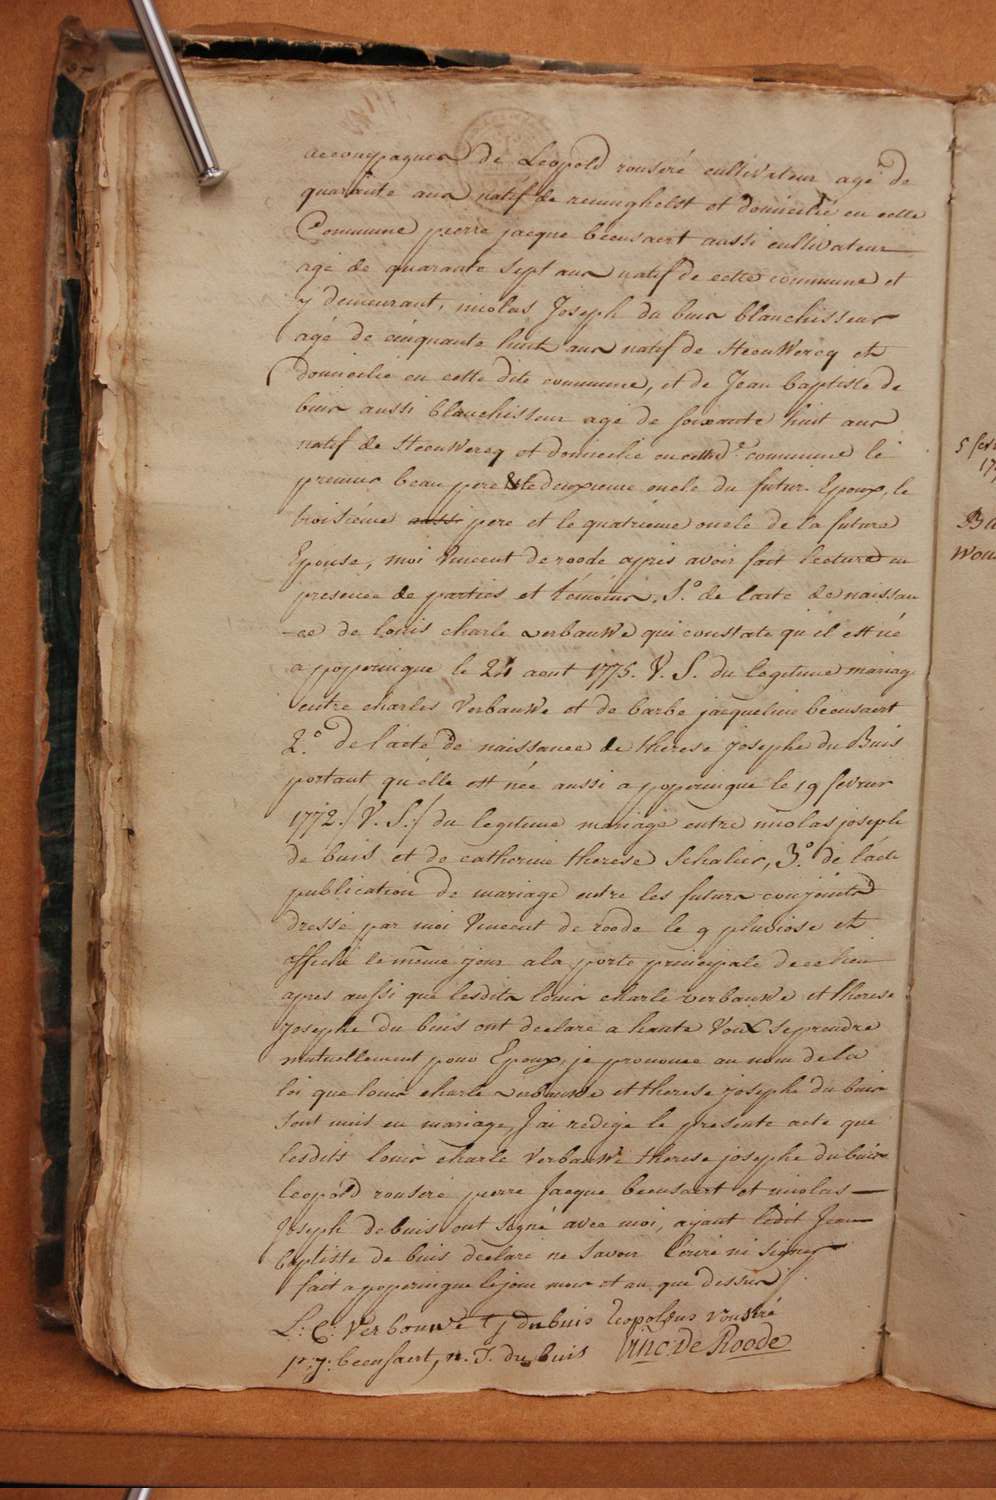 accompagnés de Leopold rouséré cultivateur agé de
quarante ans natif de reninghelst et domicilié en cette
Commune pierre jacque beeusaert aussi cultivateur
agé de quarante sept ans natif de cette commune et
y demeurant, nicolas Joseph du buis blanchisseur
agé de cinquante huit ans natif de SteenWercq et
domicilié en cette dite commune, et de Jean baptiste de
buis aussi blanchisseur agé de soixante huit ans
natif de SteenWercq et domicilié en cette d.e commune le
premier beau pere & le deuxieme oncle du futur Epoux, le
troisieme aussi pere et le quatrieme oncle de la future
Epouse, moi Vincent de roode apres avoir fait lecture en
presence de parties et témoins, 1.° de l'acte de naissan
-ce de louis charle verbauwe qui constate qu'il est né
a poperingue le 24 aout 1775. V. S. du legitime mariag
entre charles Verbauwe et de barbe jacqueline beeusaert
2.° de l'acte de naissance de therese josephe du Buis
portant qu'elle est née aussi a poperingue le 19 fevrier
1772. / V. S. / du legitime mariage entre nicolas joseph
de buis et de catherine therese Schalier, 3.° de l'acte
publication de mariage entre les futurs conjoints
dressé par moi Vincent de roode le 9 pluviose et
affiché le même jour a la porte principale de ce lieu
apres aussi que lesdits louis charle verbauwe et therese
josephe du buis ont declaré a haute Voix se prendre
mutuellement pour Epoux, je prononce au nom de la
loi que louis charle verbauwe et therese josephe du buis
sont unis en mariage, J'ai redigé le presente acte que
lesdits louis charle verbauwe therese josephe du buis
Leopold rouseré pierre Jacque beeusaert et nicolas
Joseph de buis ont signé avec moi, ayant ledit Jean
baptiste de buis declaré ne savoir Ecrire ni signer
fait a poperingue le jour mois et an que dessus
L: C: Verbouwe T J du buis Leopoldus Rousere
p.r: j: beeusaert, n. J. du buis Vinc: De Roode
5 fevr
17
Ba
Wou